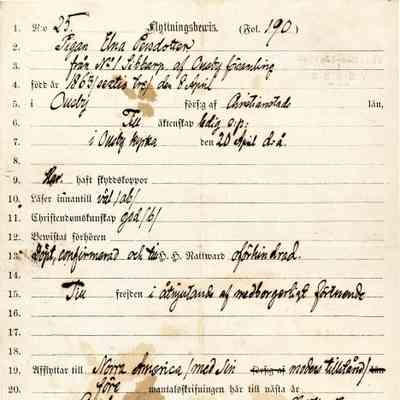 1. No 25. Flyttningsbewis. (Fol. 190.)
2. Pigan Elna Persdotter
3. från No 1 Sibbarp af Ousby församling
4. född år 1863 /sextio tre/ den 8 April
5. i Ousby förs:g af Christianstads län,
6. Till äktenskap ledig o;p:
7. i Ousby Kyrka den 20 April d.å.
8.
9. Har haft skyddskoppor
10. Läser innantill väl /ab/
11. Christendomskunskap god /b/
12. Bewistat förhören
13. Döpt, confirmerad och till H. H. Nattward oförhindrad.
14.
15. Till frejden i åtnjutande af medborgerligt förtroende
16.
17.
18.
19. Afflyttar till Norra America /med sin förs:g af moders tillstånd/ län
20. före mantalsskrifningen här till nästa år